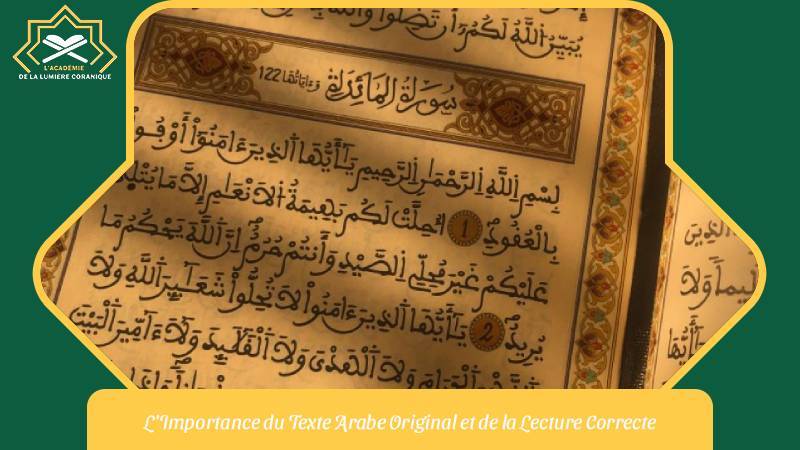 L'ACADÉMIE
DE LA LUMIÈRE CORANIQUE
يُبَيِّنُ اللَّهُ لَكُمُ أَن تَضِلُّوا
سُورَةُ المَائِدَةِ وَءَايَاتُهَا 122
بِسْمِ اِللَّهِ اِلرَّحْمَٰنِ اِلرَّحِيمِ يَٰٓأَيُّهَا اَلذِينَ ءَامَنُوٓاْ أَوْفُواْ
بِالْعُقُودِ 1 اُحِلَّتْ لَكُم بَهِيمَةُ اُلَانْعَٰمِ إِلَّا مَا يُتْلَىٰ
عَلَيْكُمْ غَيْرَ مُحِلِّے اِلصَّيْدِ وَأَنتُمْ حُرُمٌ اِنَّ اَللَّهَ يَحْكُمُ مَا
يُرِيدُ 2 يَٰٓأَيُّهَا اَلذِينَ ءَامَنُواْ لَا تُحِلُّواْ شَعَٰٓئِرَ اَللَّهِ وَلَا
اَلشَّهْرَ اَلْحَرَامَ وَلَا اَلْهَدْىَ وَلَا اَلْقَلَٰٓئِدَ وَلَآ ءَآمِّينَ اَلْبَيْتَ
L'Importance du Texte Arabe Original et de la Lecture Correcte